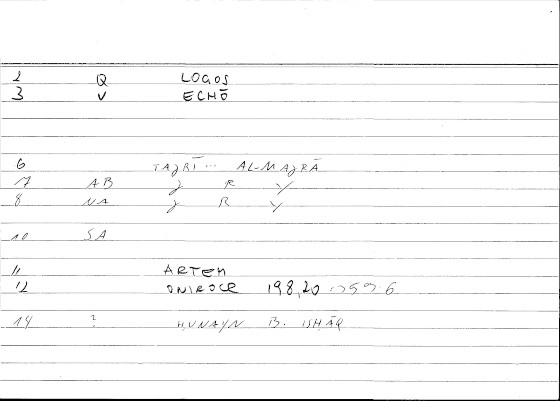 2 Q LOGOS
3 V ECHŌ
6 TAJRĪ... AL-MAJRĀ
17 AB J R Y
8 NA J R Y
10 SA
11 ARTEM
12 ONIROCR 198,20
14 ? HUNAYN B. ISHĀQ